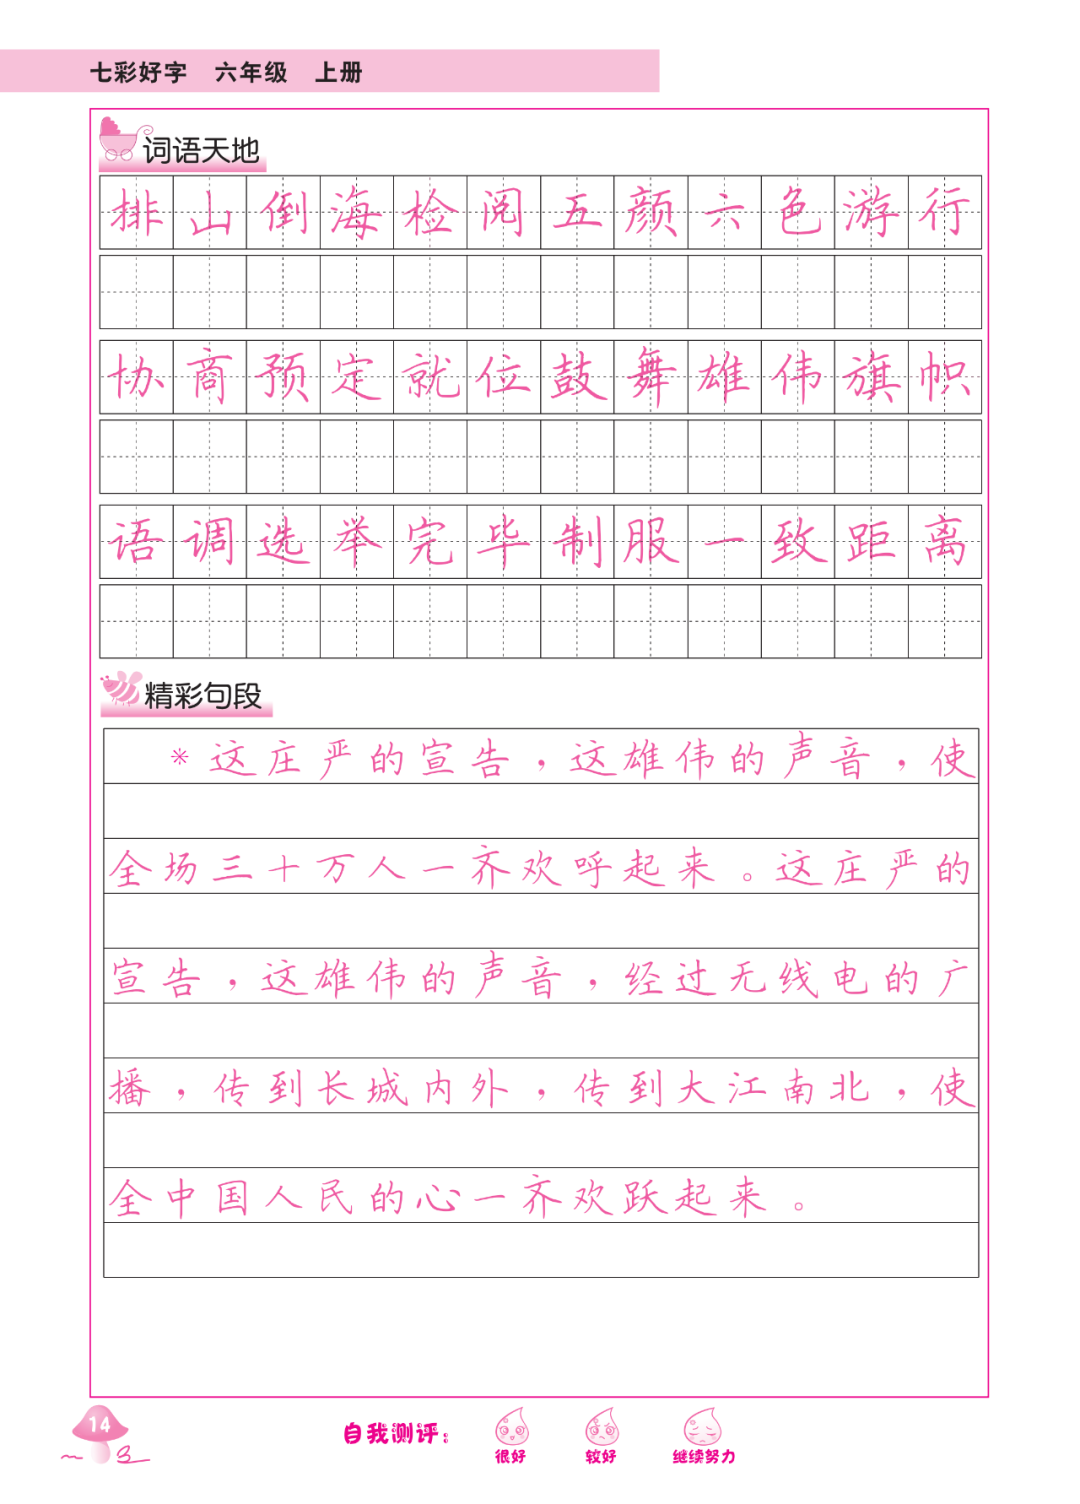 七彩好字 六年级 上册
词语天地
排山倒海检阅五颜六色游行
协商预定就位鼓舞雄伟旗帜
语调选举完毕制服一致距离
精彩句段
*这庄严的宣告，这雄伟的声音，使
全场三十万人一齐欢呼起来。这庄严的
宣告，这雄伟的声音，经过无线电的广
播，传到长城内外，传到大江南北，使
全中国人民的心一齐欢跃起来。
14
自我测评：
很好 较好 继续努力